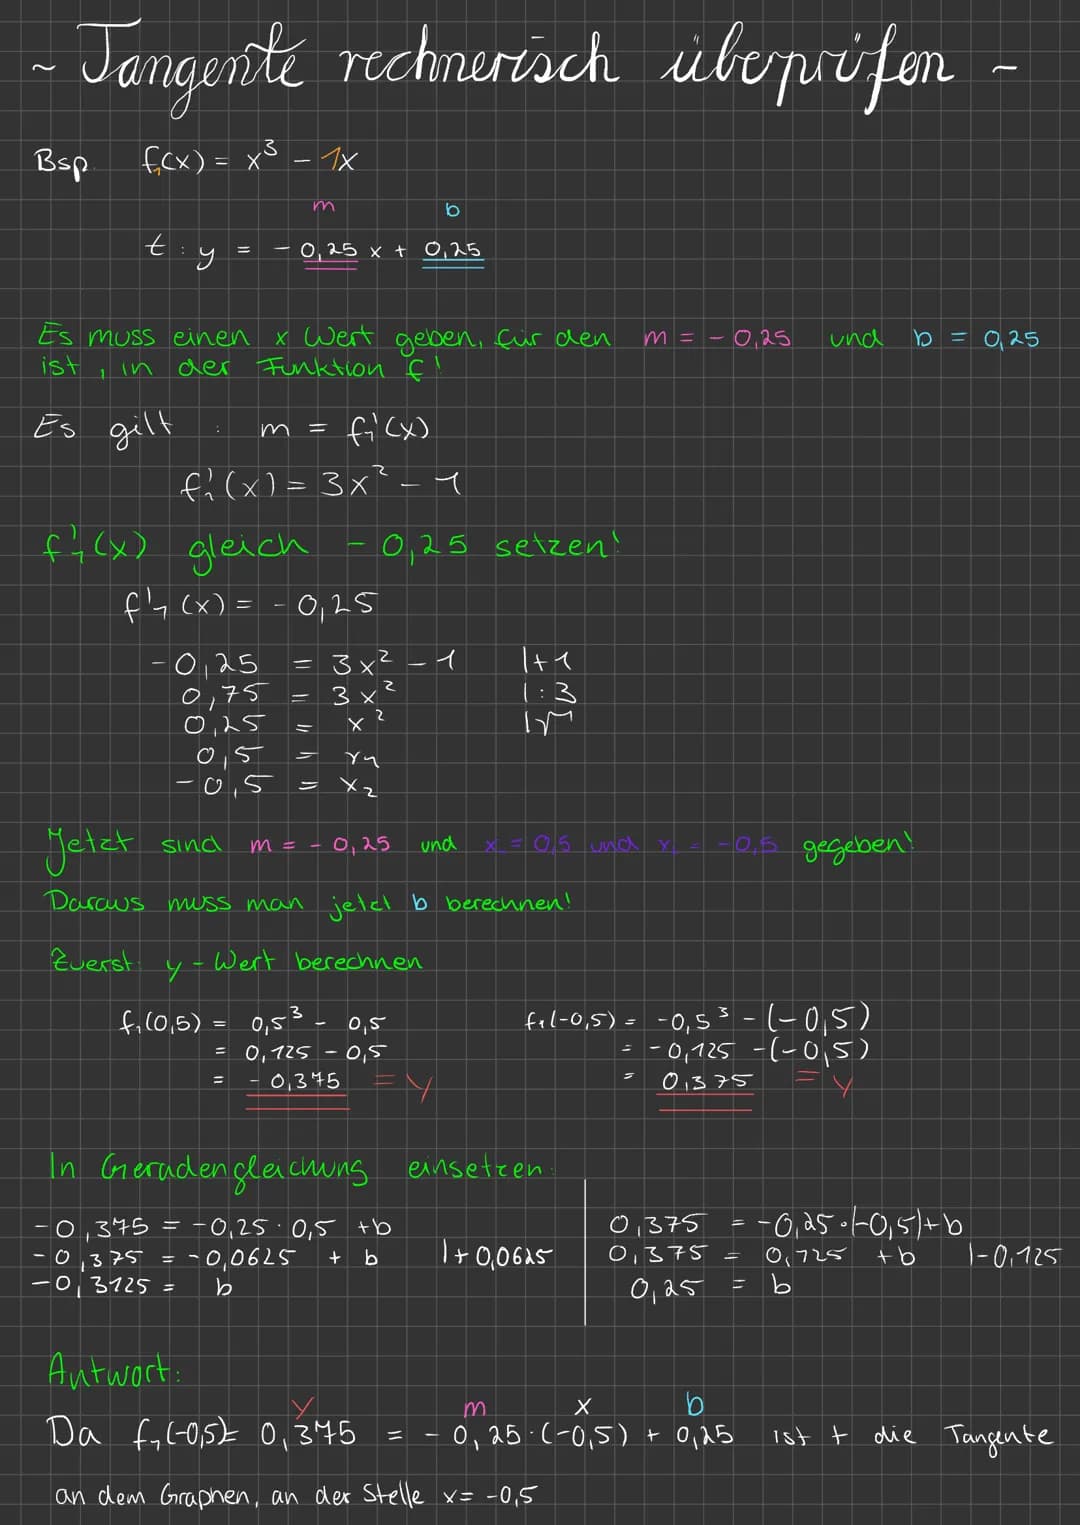 ~ Tangente rechnerisch überprüfen ~
Bsp. f₁(x) = x³ - 1x
m b
t : y = - 0,25 x + 0,25
Es muss einen x Wert geben, für den m = - 0,25 und b = 0,25
ist, in der Funktion f!
Es gilt : m = f₁'(x)
f₁'(x) = 3x² - 1
f'₁(x) gleich - 0,25 setzen!
f'₁(x) = - 0,25
-0,25 = 3x² - 1 |+1
0,75 = 3x² |:3
0,25 = x² |√
0,5 = x₁
-0,5 = x₂
Jetzt sind m = - 0,25 und x₁ = 0,5 und x₂ = -0,5 gegeben!
Daraus muss man jetzt b berechnen!
Zuerst: y-Wert berechnen
f₁(0,5) = 0,5³ - 0,5 f₁(-0,5) = -0,5³ - (-0,5)
= 0,125 - 0,5 = -0,125 -(-0,5)
= - 0,375 = y = 0,375 = y
In Geradengleichung einsetzen:
-0,375 = -0,25 · 0,5 +b 0,375 = -0,25·(-0,5)+b
-0,375 = -0,0625 + b |+0,0625 0,375 = 0,125 +b |-0,125
-0,3125 = b 0,25 = b
Antwort:
y m x b
Da f₁(-0,5) = 0,375 = - 0,25·(-0,5) + 0,25 ist t die Tangente
an dem Graphen, an der Stelle x= -0,5